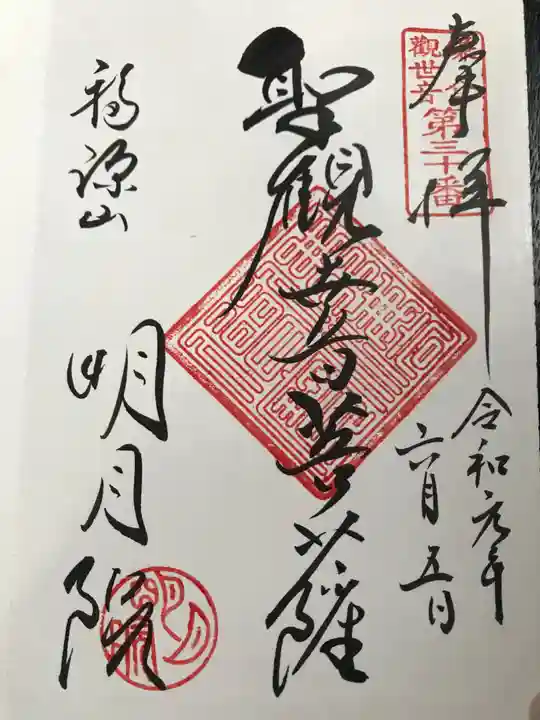 奉拝
觀世音第三十番
令和元年
六月五日
聖観世音菩薩
福源山
明月院